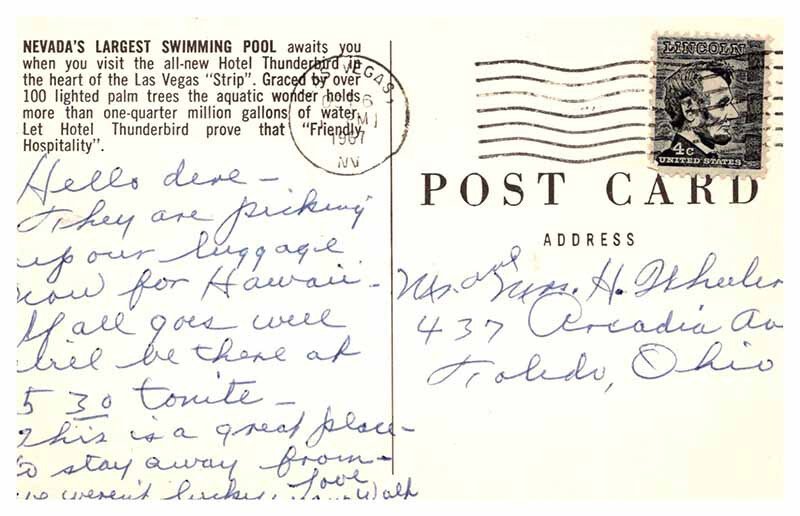 NEVADA'S LARGEST SWIMMING POOL awaits you
when you visit the all-new Hotel Thunderbird in
the heart of the Las Vegas "Strip". Graced by over
100 lighted palm trees the aquatic wonder holds
more than one-quarter million gallons of water.
Let Hotel Thunderbird prove that "Friendly
Hospitality".
VEGAS,
6
1967
NV
LINCOLN
4c
UNITED STATES
POST CARD
ADDRESS
Mr. and Mrs. H. Wheeler
437 Arcadia Av
Toledo, Ohio
Hello dere -
They are picking
up our luggage
now for Hawaii -
If all goes well
will be there at
5 30 tonite -
This is a great place -
to stay away from -
we weren't lucky. Love
Walt